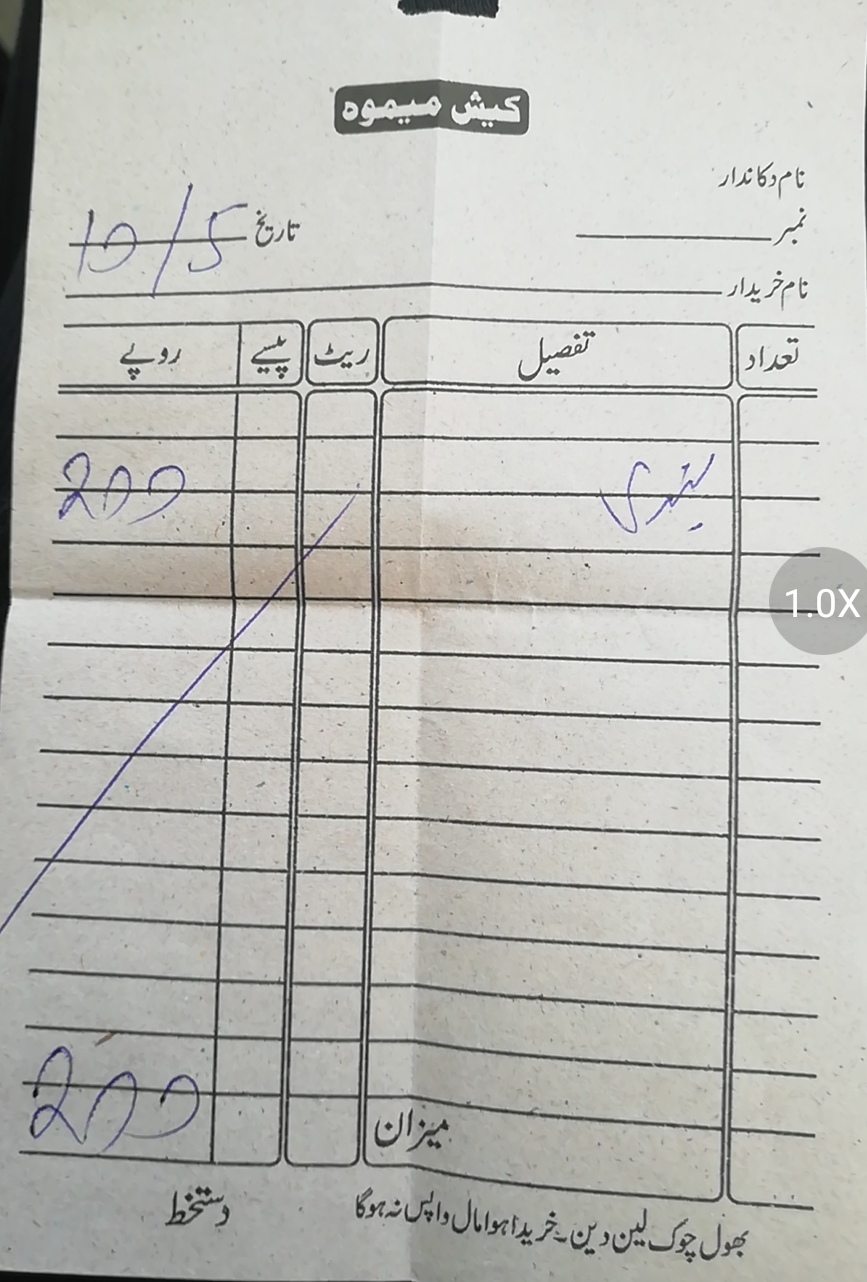 کیش میموہ
نام دکاندار
نمبر تاریخ 10/5
نام خریدار
تعداد تفصیل ریٹ پیسے روپے
200
میزان 200
بھول چوک لین دین۔خریدا ہوا مال واپس نہ ہوگا دستخط
1.0X